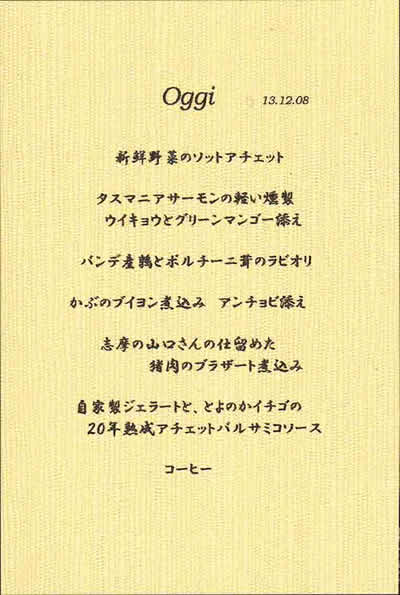 Oggi 13.12.08
新鮮野菜のソットアチェット
タスマニアサーモンの軽い燻製
ウイキョウとグリーンマンゴー添え
バンデ産鶉とポルチーニ茸のラビオリ
かぶのブイヨン煮込み アンチョビ添え
志摩の山口さんの仕留めた
猪肉のブラザート煮込み
自家製ジェラートと、とよのかイチゴの
20年熟成アチェットバルサミコソース
コーヒー